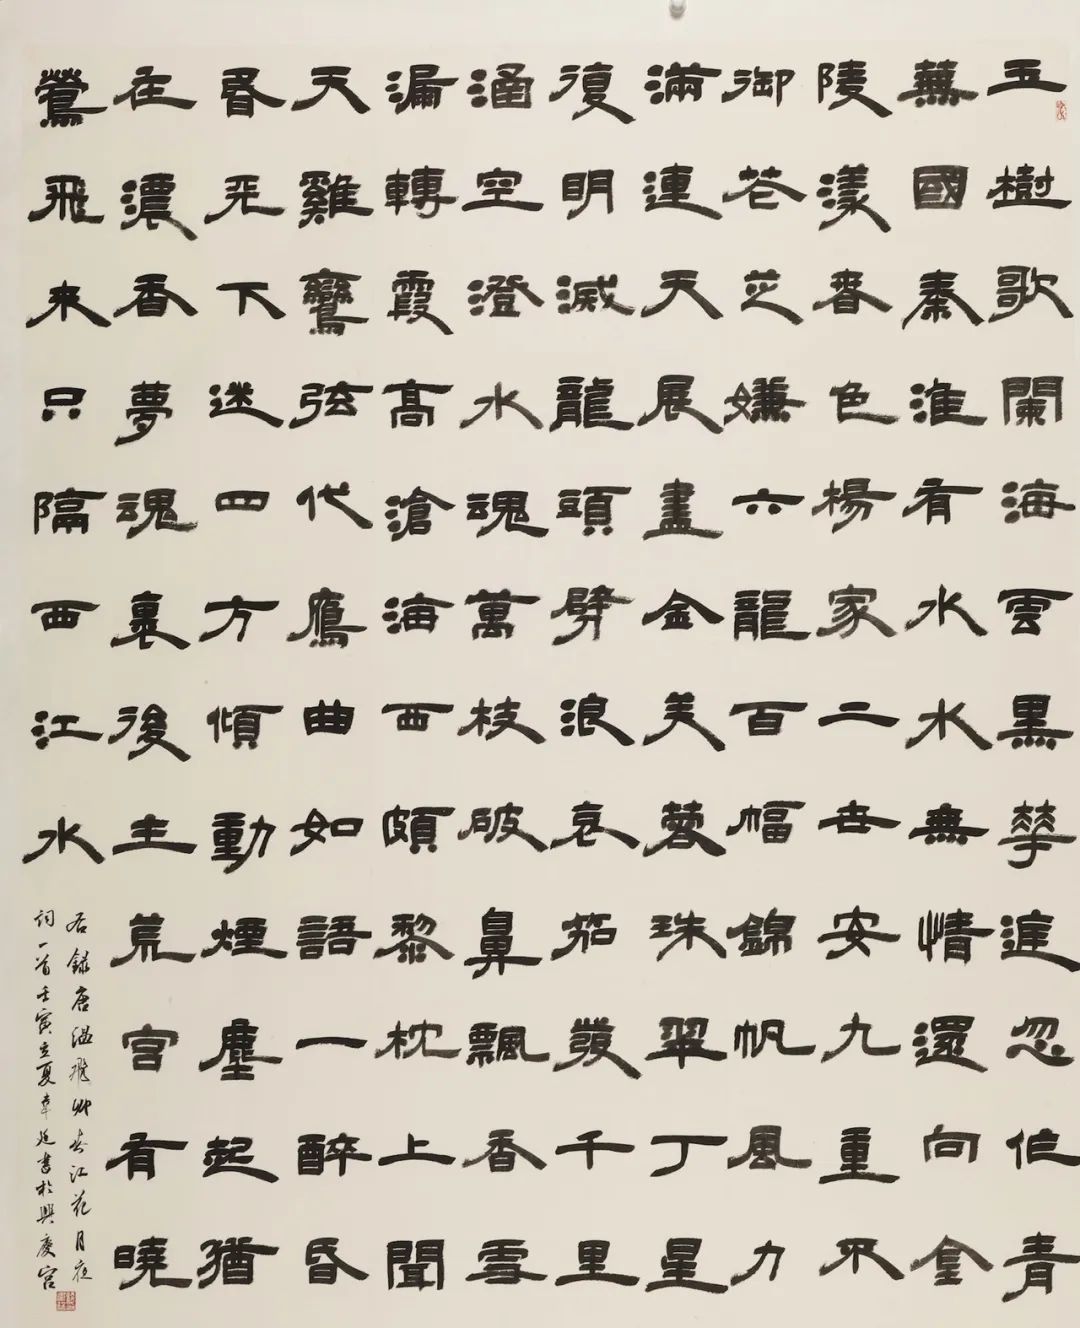 玉樹歌闌海雲黑華庭忽作青
蕪國秦淮有水水無情還向金
陵漾春色楊家二世安九重不
御花芝嫌六龍百幅錦帆風力
滿連天展盡金芙蓉珠翠丁星
復明滅龍頭劈浪哀笳發千里
涵空澄水魂萬枝破鼻飄香雪
漏轉霞高滄海西頗黎枕上聞
天雞鸞弦代鴈曲如語一醉昏
昏天下迷四方傾動煙塵起猶
在濃香夢魂裏後主荒宮有曉
鶯飛來只隔西江水
右錄唐温飛卿春江花月夜
詞一首壬寅立夏書於興慶宮